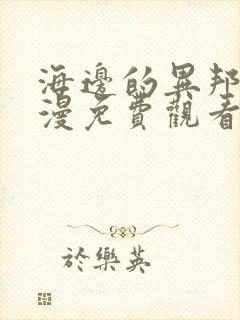 海邊的異邦
漫免費觀看
於樂英